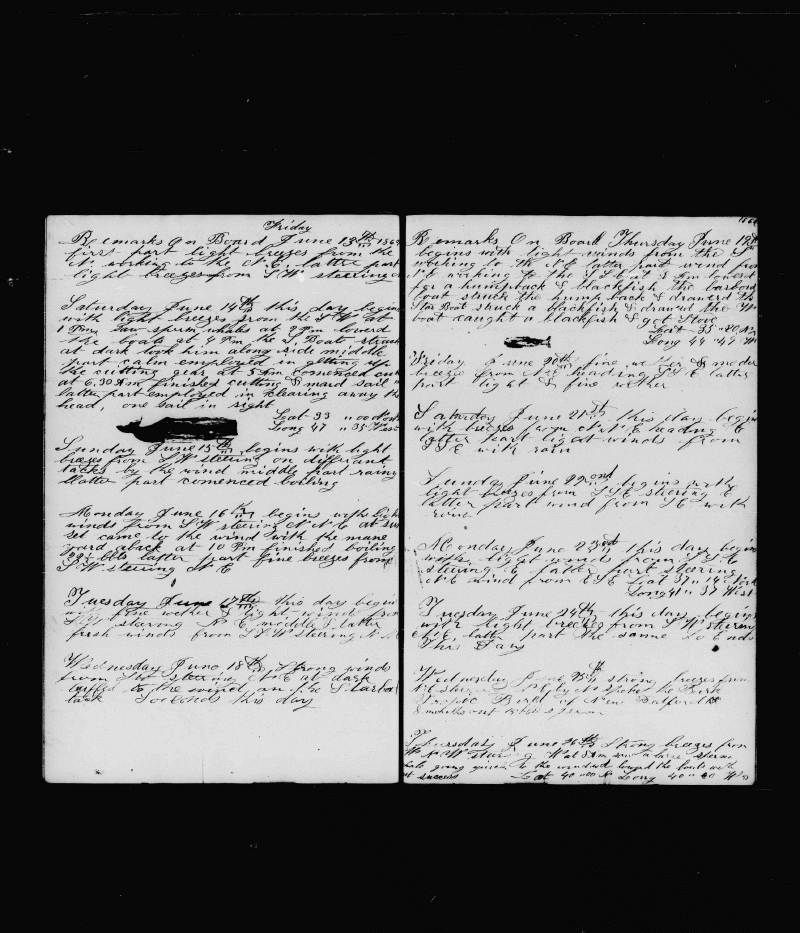 Friday
Remarks On Board June 13th 1862
first part light breezes from the
working to the N E, latter part
light breezes from S W steering
Saturday June 14th this day begins
with light breezes from the S W at
1 Pm saw sperm whales at 2 Pm lowerd
the boats at 4 Pm the S. Boat struck
at dark took him along side middle
part calm employed in getting up
the cutting gear at 5 Am comenced cut
at 6,30 Am finished cutting & mard sail
latter part employed in clearing away the
head, one sail in sight
Lat 33 " 00 North
Long 47 " 35 West
Sunday June 15th begins with light
breezes from S W steering on differant
tacks by the wind middle part rainy
latter part comenced boiling
Monday June 16th begins with light
winds from S W steering N N E at sun
set came to the wind with the mane
yard aback at 10 Pm finished boiling
22½ bbls latter part fine breezes from
S W steering N E
Tuesday June 17th this day begins
with fine wether & light winds from
steering N E middle & latter
fresh winds from S S W steering N N
Wednesday June 18th Strong winds
from steering N E at dark
luffed to the wind on the Starbo
tack So ends this day
Remarks On Board Thursday June 19th
begins with light winds from the S
working to the N E latter part wind from
N E working to the S S E at 8 Am lowerd
for a humpback & blackfish the barbord
boat struck the hump back & drawerd the
Star Boat struck a blackfish & drawed the W
boat caught a blackfish & got Stove
Lat 35 " 40 N
Long 44 " 49 W
Friday June 20th fine wether & moder
breeze from heading latter
part light & fine wether
Saturday June 21st this day begins
with breezes from N N E heading E
latter part light winds from
S E with rain
Sunday June 22ond begins with
light breezes from S S E steering E
latter part wind from S E with
rain
Monday June 23rd this day begins
with light winds from S S E
steering E latter part steering
N E wind from E S E Lat 37 " 14 North
Long 41 " 37 West
Tuesday June 24th this day begins
with light breezes from S W steering
N E, latter part the same So Ends
This Day
Wednesday June 25th strong breezes from
steering spoke the Bark
Tropic Bird of New Bedford
8 months out sperm
Thursday June 26th Strong breezes from
W N W at 8 Am saw a large sperm
whale going quick to the windard lowerd the boats with
out success Lat 40 " 00 N Long 40 " 30 W